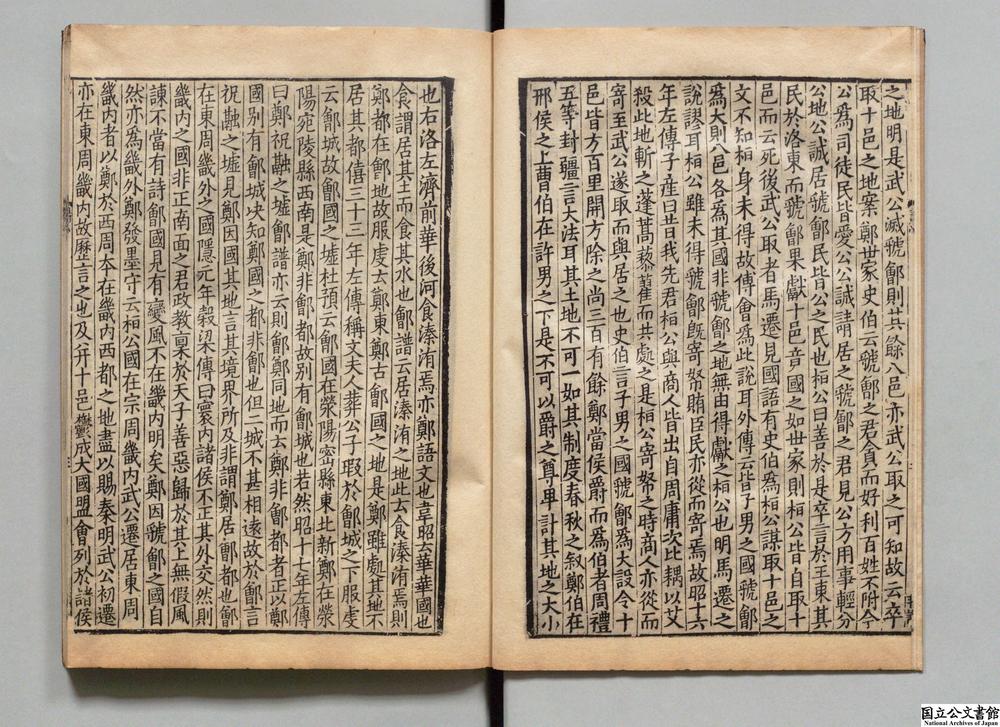 之地明是武公滅虢鄶則其餘八邑亦武公取之可知故云卒
取十邑之地案鄭世家史伯云虢鄶之君貪而好利百姓不附今
公為司徒民皆愛公公誠請居之虢鄶之君見公方用事輕分
公地公誠居虢鄶民皆公之民也桓公曰善於是卒言於王東其
民於洛東而虢鄶果獻十邑竟國之如世家則桓公皆自取十
邑而云死後武公取者馬遷見國語有史伯為桓公謀取十邑之
文不知桓身未得故傅會為此說耳外傳云皆子男之國虢鄶
為大則八邑各為其國非虢鄶之地無由得獻之桓公也明馬遷之
說謬耳桓公雖未得虢鄶既寄帑賄臣民亦從而寄焉故昭十六
年左傳子產曰昔我先君桓公與商人皆出自周庸次比耦以艾
殺此地斬之蓬蒿藜藋而共處之是桓公寄帑之時商人亦從而
寄至武公遂取而與居之也史伯言子男之國虢鄶為大設令十
邑皆方百里開方除之尚三百有餘鄭當侯爵而為伯者周禮
五等封疆言大法耳其土地不可一如其制度春秋之叙鄭伯在
邢侯之上曹伯在許男之下是不可以爵之尊卑計其地之大小
也右洛左濟前華後河食溱洧焉亦鄭語文也韋昭云華華國也
食謂居其土而食其水也鄶譜云居溱洧之地此云食溱洧焉則
鄭都在鄶地故服虔云鄭東鄭古鄶國之地是鄭雖處其地不
居其都僖三十三年左傳稱文夫人葬公子瑕於鄶城之下服虔
云鄶城故鄶國之墟杜預云鄶國在滎陽密縣東北新鄭在滎
陽宛陵縣西南是鄭非鄶都故別有鄶城也若然昭十七年左傳
曰鄭祝融之墟鄶譜亦云則鄶鄭同地而云鄭非鄶都者正以鄭
國別有鄶城決知鄭國之都非鄶也但二城不甚相遠故於鄶言
祝融之墟見鄭因國其地言其境界所及非謂鄭居鄶都也鄶
在東周畿外之國隱元年穀梁傳曰寰內諸侯不正其外交然則
畿內之國非正南面之君政教稟於天子善惡歸於其上無假風
諫不當有詩鄶國見有變風不在畿內明矣鄭因虢鄶之國自
然亦為畿外鄭發墨守云桓公國在宗周畿內武公遷居東周
畿內者以鄭於西周本在畿內西都之地盡以賜秦明武公初遷
亦在東周畿內故歷言之也及并十邑鬱成大國盟會列於諸侯
国立公文書館
National Archives of Japan